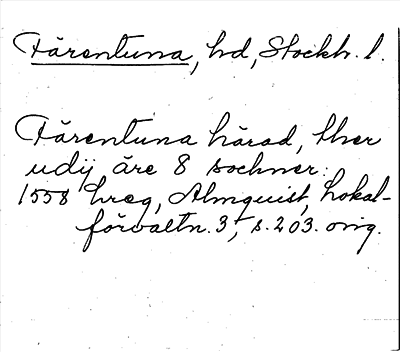 Färentuna, hd, Stockh. l.
Färentuna härad, ther
udij äre 8 sochner.
1558 hreg, Almquist, Lokal-
förvaltn. 3, s. 203. orig.